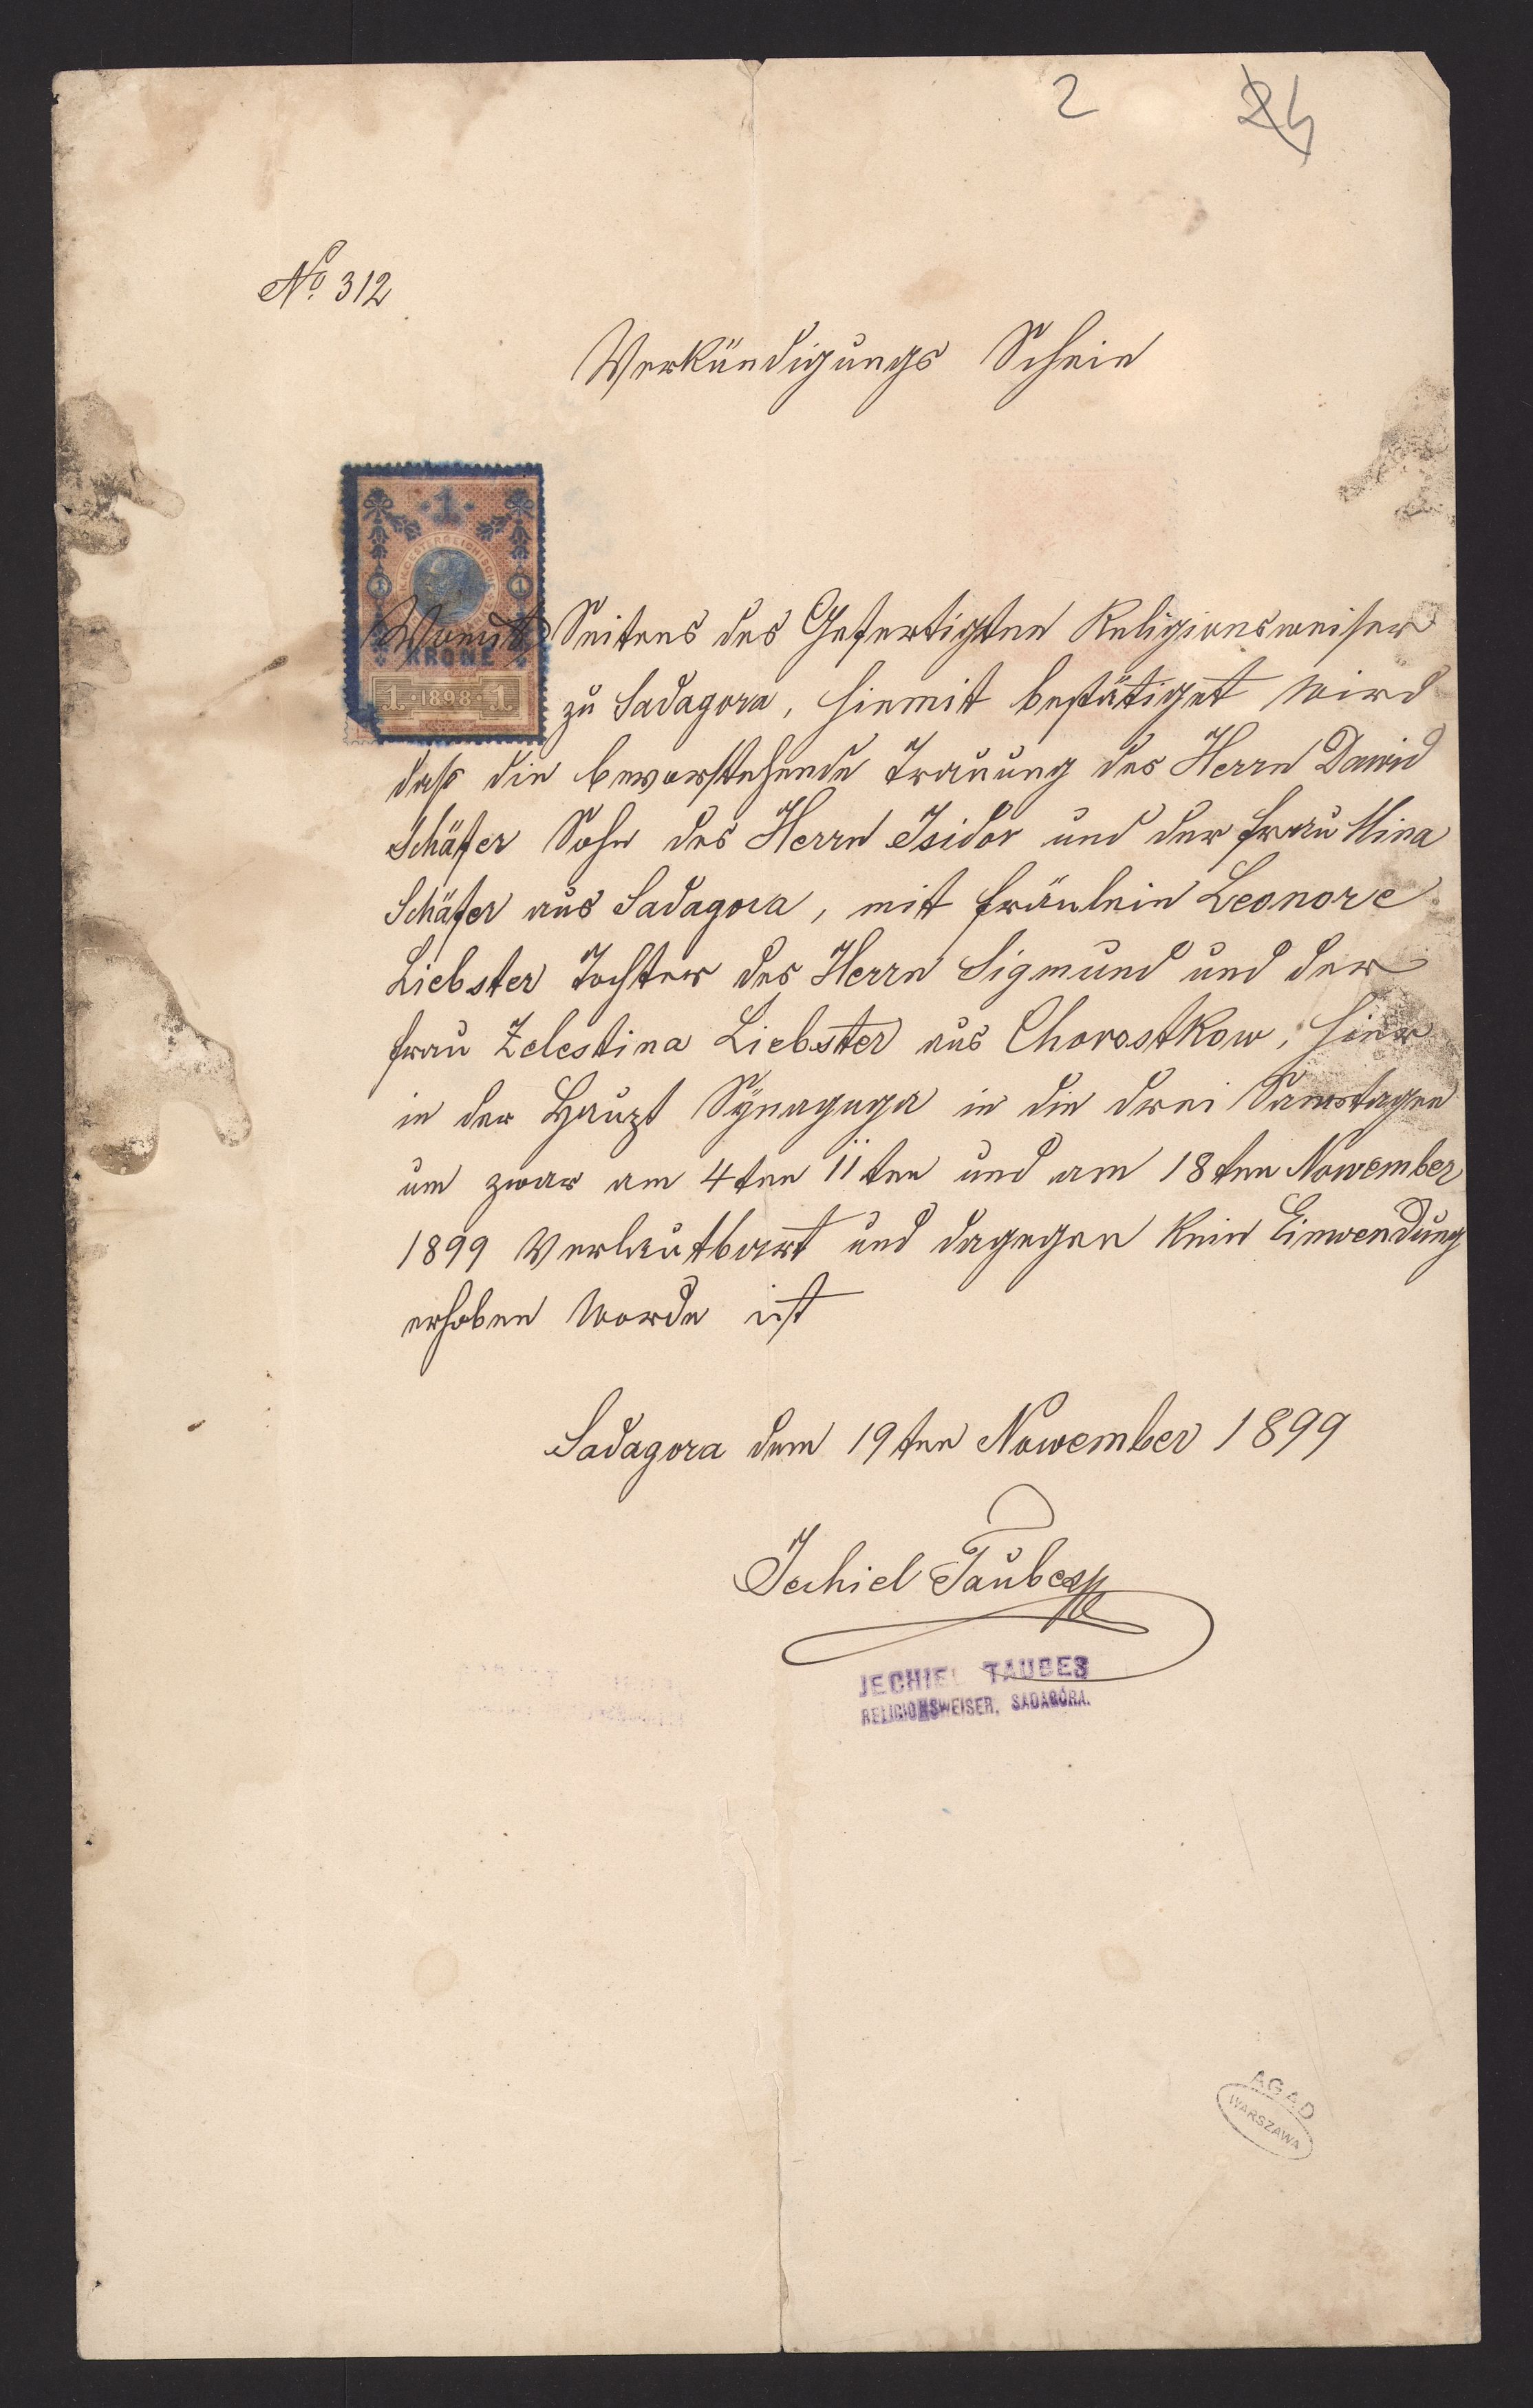 2 24
No. 312
Verkündigungs Schein
1
1 1
KRONE
1 · 1898 · 1
Womit Seitens des Gefertigten Religionsweiser
zu Sadagora, hiemit bestätiget wird
daß die bevorstehende Trauung des Herrn Dawid
Schäfer Sohn des Herrn Isidor und der Frau Mina
Schäfer aus Sadagora, mit Fräulein Leonore
Liebster Tochter des Herrn Sigmund und der
Frau Zelestina Liebster aus Chorostkow, hier
in der Haupt Synagoga in die drei Samstagen
um zwar am 4ten 11ten und am 18ten Nowember
1899 Verlautbart und dagegen kein Einwendung
erhoben worde ist
Sadagora dem 19ten Nowember 1899
Jechiel Taubes
JECHIEL TAUBES
RELIGIONSWEISER, SADAGÓRA.
AGAD
WARSZAWA